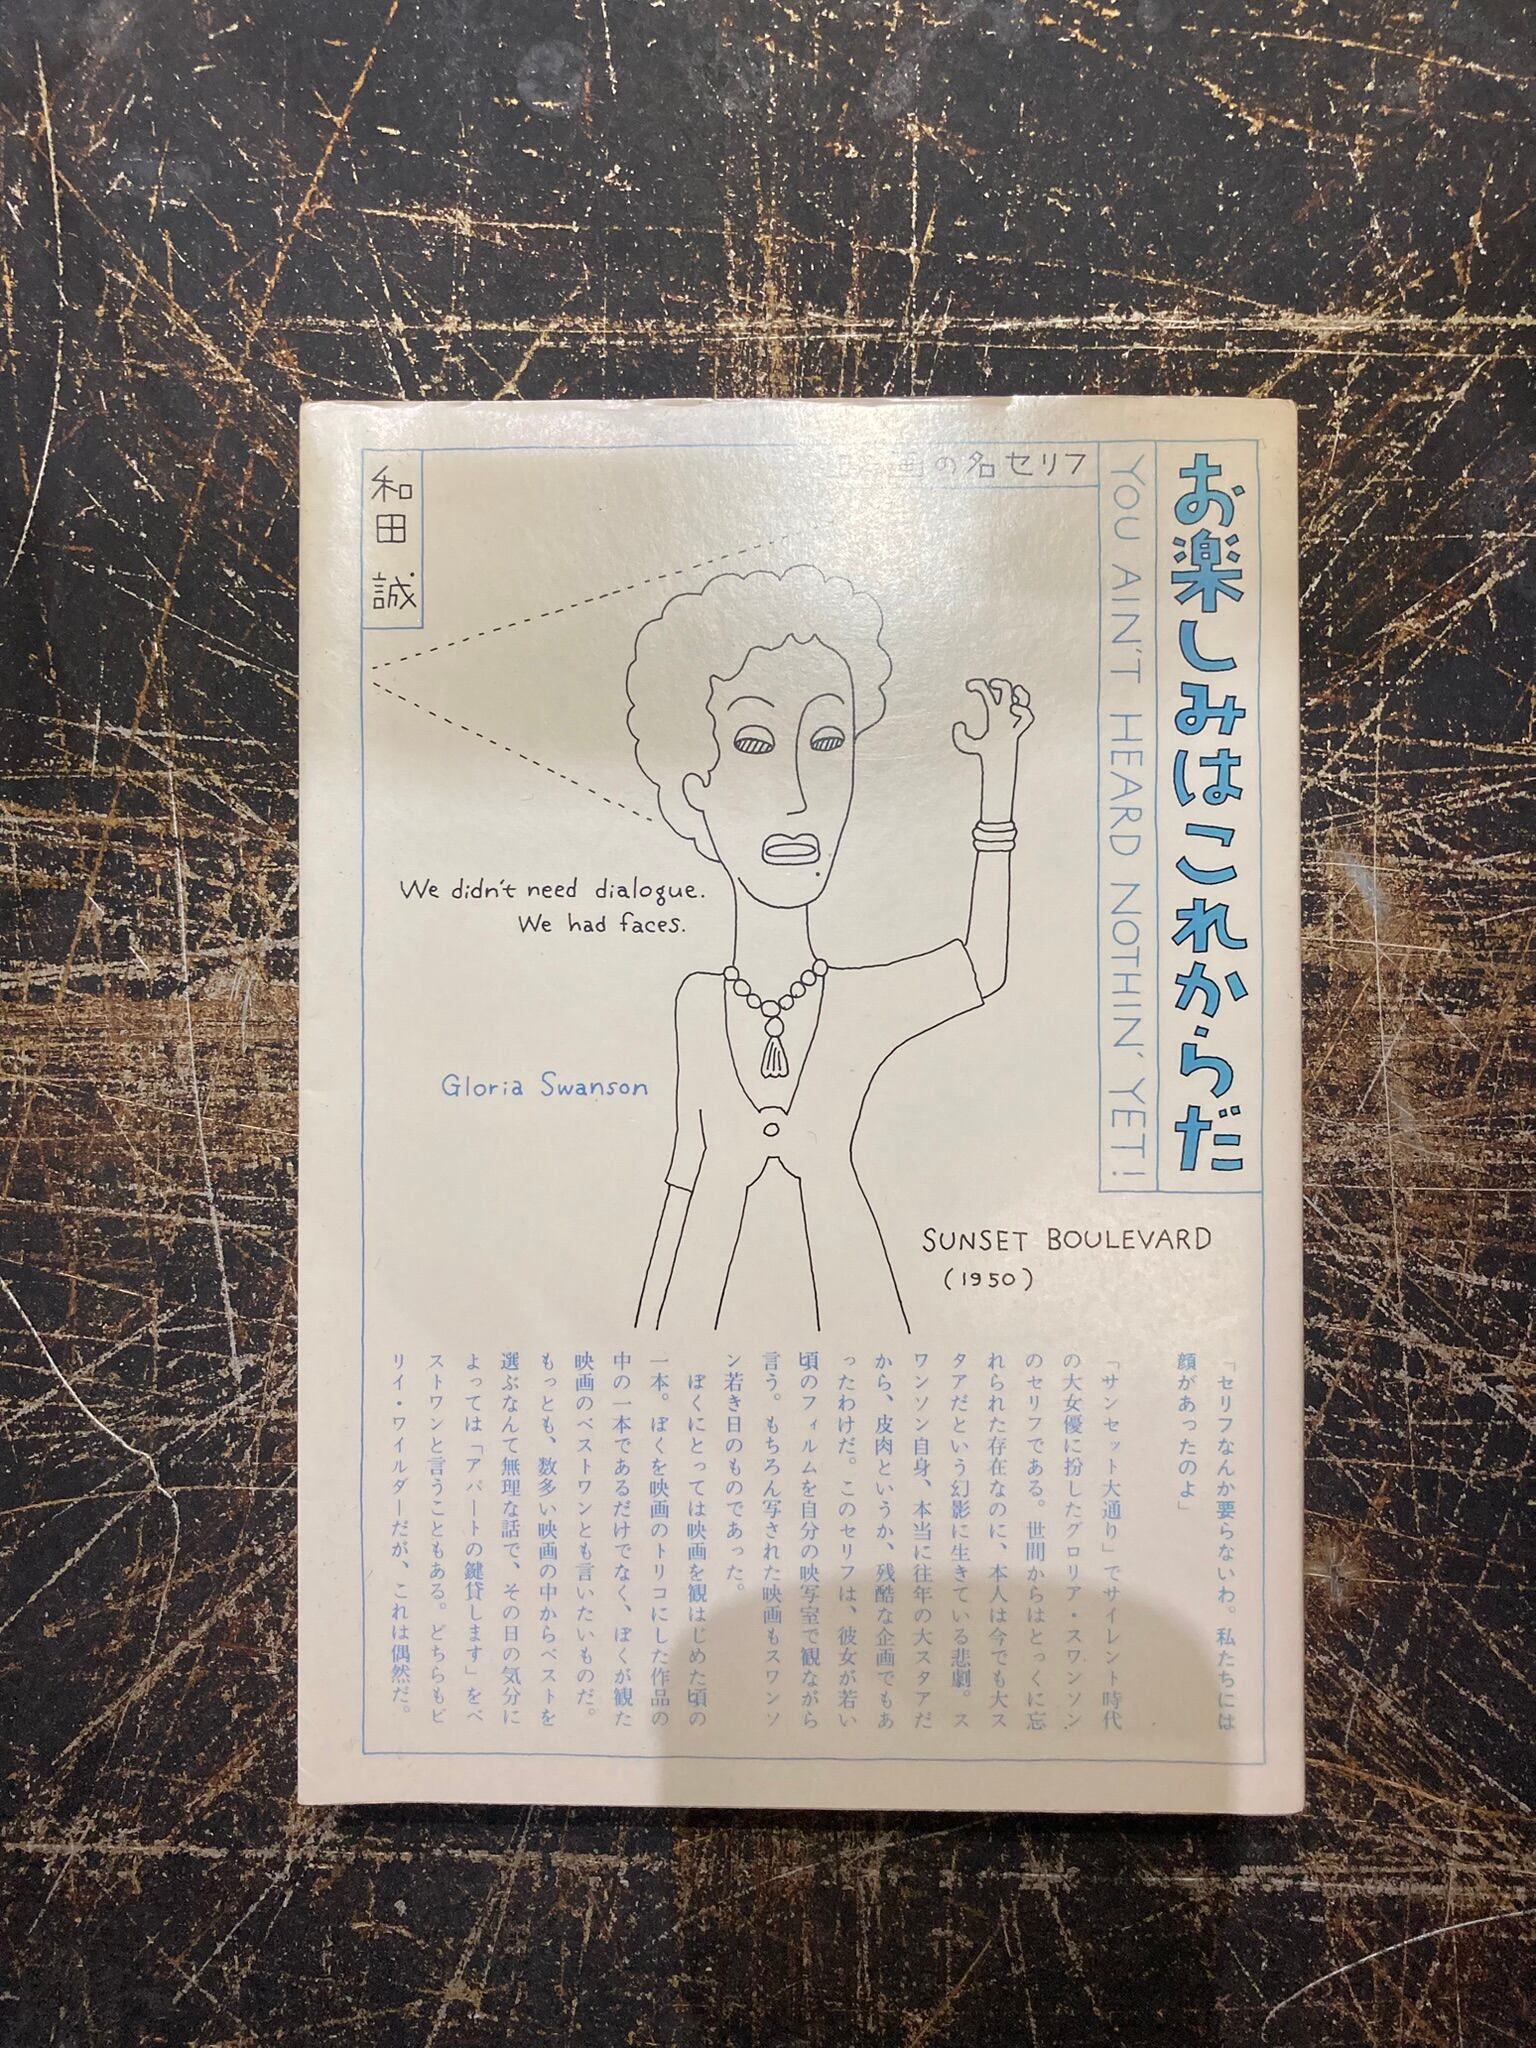 お楽しみはこれからだ
YOU AIN'T HEARD NOTHIN' YET!
画の名セリフ
和田 誠
We didn't need dialogue.
We had faces.
Gloria Swanson
SUNSET BOULEVARD
(1950)
「セリフなんか要らないわ。私たちには
顔があったのよ」
「サンセット大通り」でサイレント時代
の大女優に扮したグロリア・スワンソン
のセリフである。世間からはとっくに忘
れられた存在なのに、本人は今でも大ス
タアだという幻影に生きている悲劇。ス
ワンソン自身、本当に往年の大スタアだ
から、皮肉というか、残酷な企画でもあ
ったわけだ。このセリフは、彼女が若い
頃のフィルムを自分の映写室で観ながら
言う。もちろん写された映画もスワンソ
ン若き日のものであった。
ぼくにとっては映画を観はじめた頃の
一本。ぼくを映画のトリコにした作品の
中の一本であるだけでなく、ぼくが観た
映画のベストワンとも言いたいものだ。
もっとも、数多い映画の中からベストを
選ぶなんて無理な話で、その日の気分に
よっては「アパートの鍵貸します」をベ
ストワンと言うこともある。どちらもビ
リイ・ワイルダーだが、これは偶然だ。